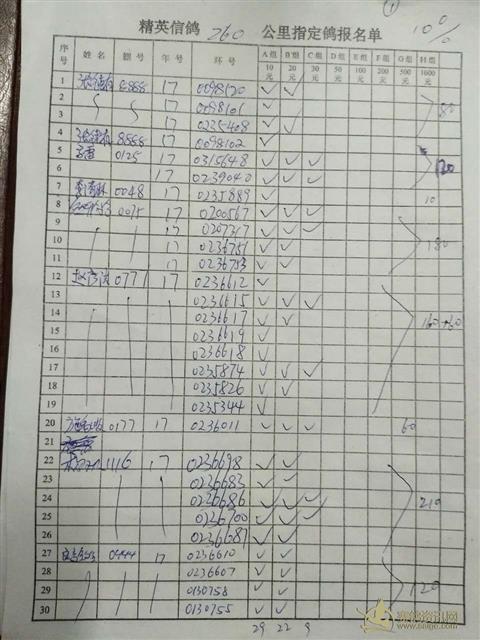 ①
精英信鸽 260 公里指定鸽报名单 10%
序号 姓名 棚号 年号 环号 A组 10元 B组 20元 C组 30元 D组 50元 E组 100元 F组 200元 G组 500元 H组 1000元
1 8888 17 0098120 ✓ ✓
2 0098101 ✓ 80
3 0235408 ✓ ✓
4 8888 17 0098102 ✓
5 0125 17 0315648 ✓ ✓ ✓ 120
6 17 0239040 ✓ ✓ ✓
7 0048 17 0235889 ✓ 10
8 0075 17 0200567 ✓ ✓ ✓
9 17 0207317 ✓ ✓ ✓ 180
10 17 0236751 ✓ ✓
11 17 0236753 ✓ ✓
12 0771 17 0236612 ✓
13 0236615 ✓ ✓ ✓
14 0236617 ✓ ✓ 160+60
15 0236619 ✓
16 0236618 ✓
17 0235874 ✓ ✓ ✓
18 0235826 ✓ ✓
19 0235344 ✓
20 0177 17 0236011 ✓ ✓ ✓ 60
21
22 1116 17 0236698 ✓ ✓
23 0236683 ✓ ✓
24 0236686 ✓ ✓ ✓ 210
25 0226700 ✓ ✓ ✓
26 0236687 ✓ ✓
27 0444 17 0236610 ✓ ✓
28 0236607 ✓ ✓
29 0130758 ✓ ✓ 120
30 0130755 ✓ ✓
29 22 9